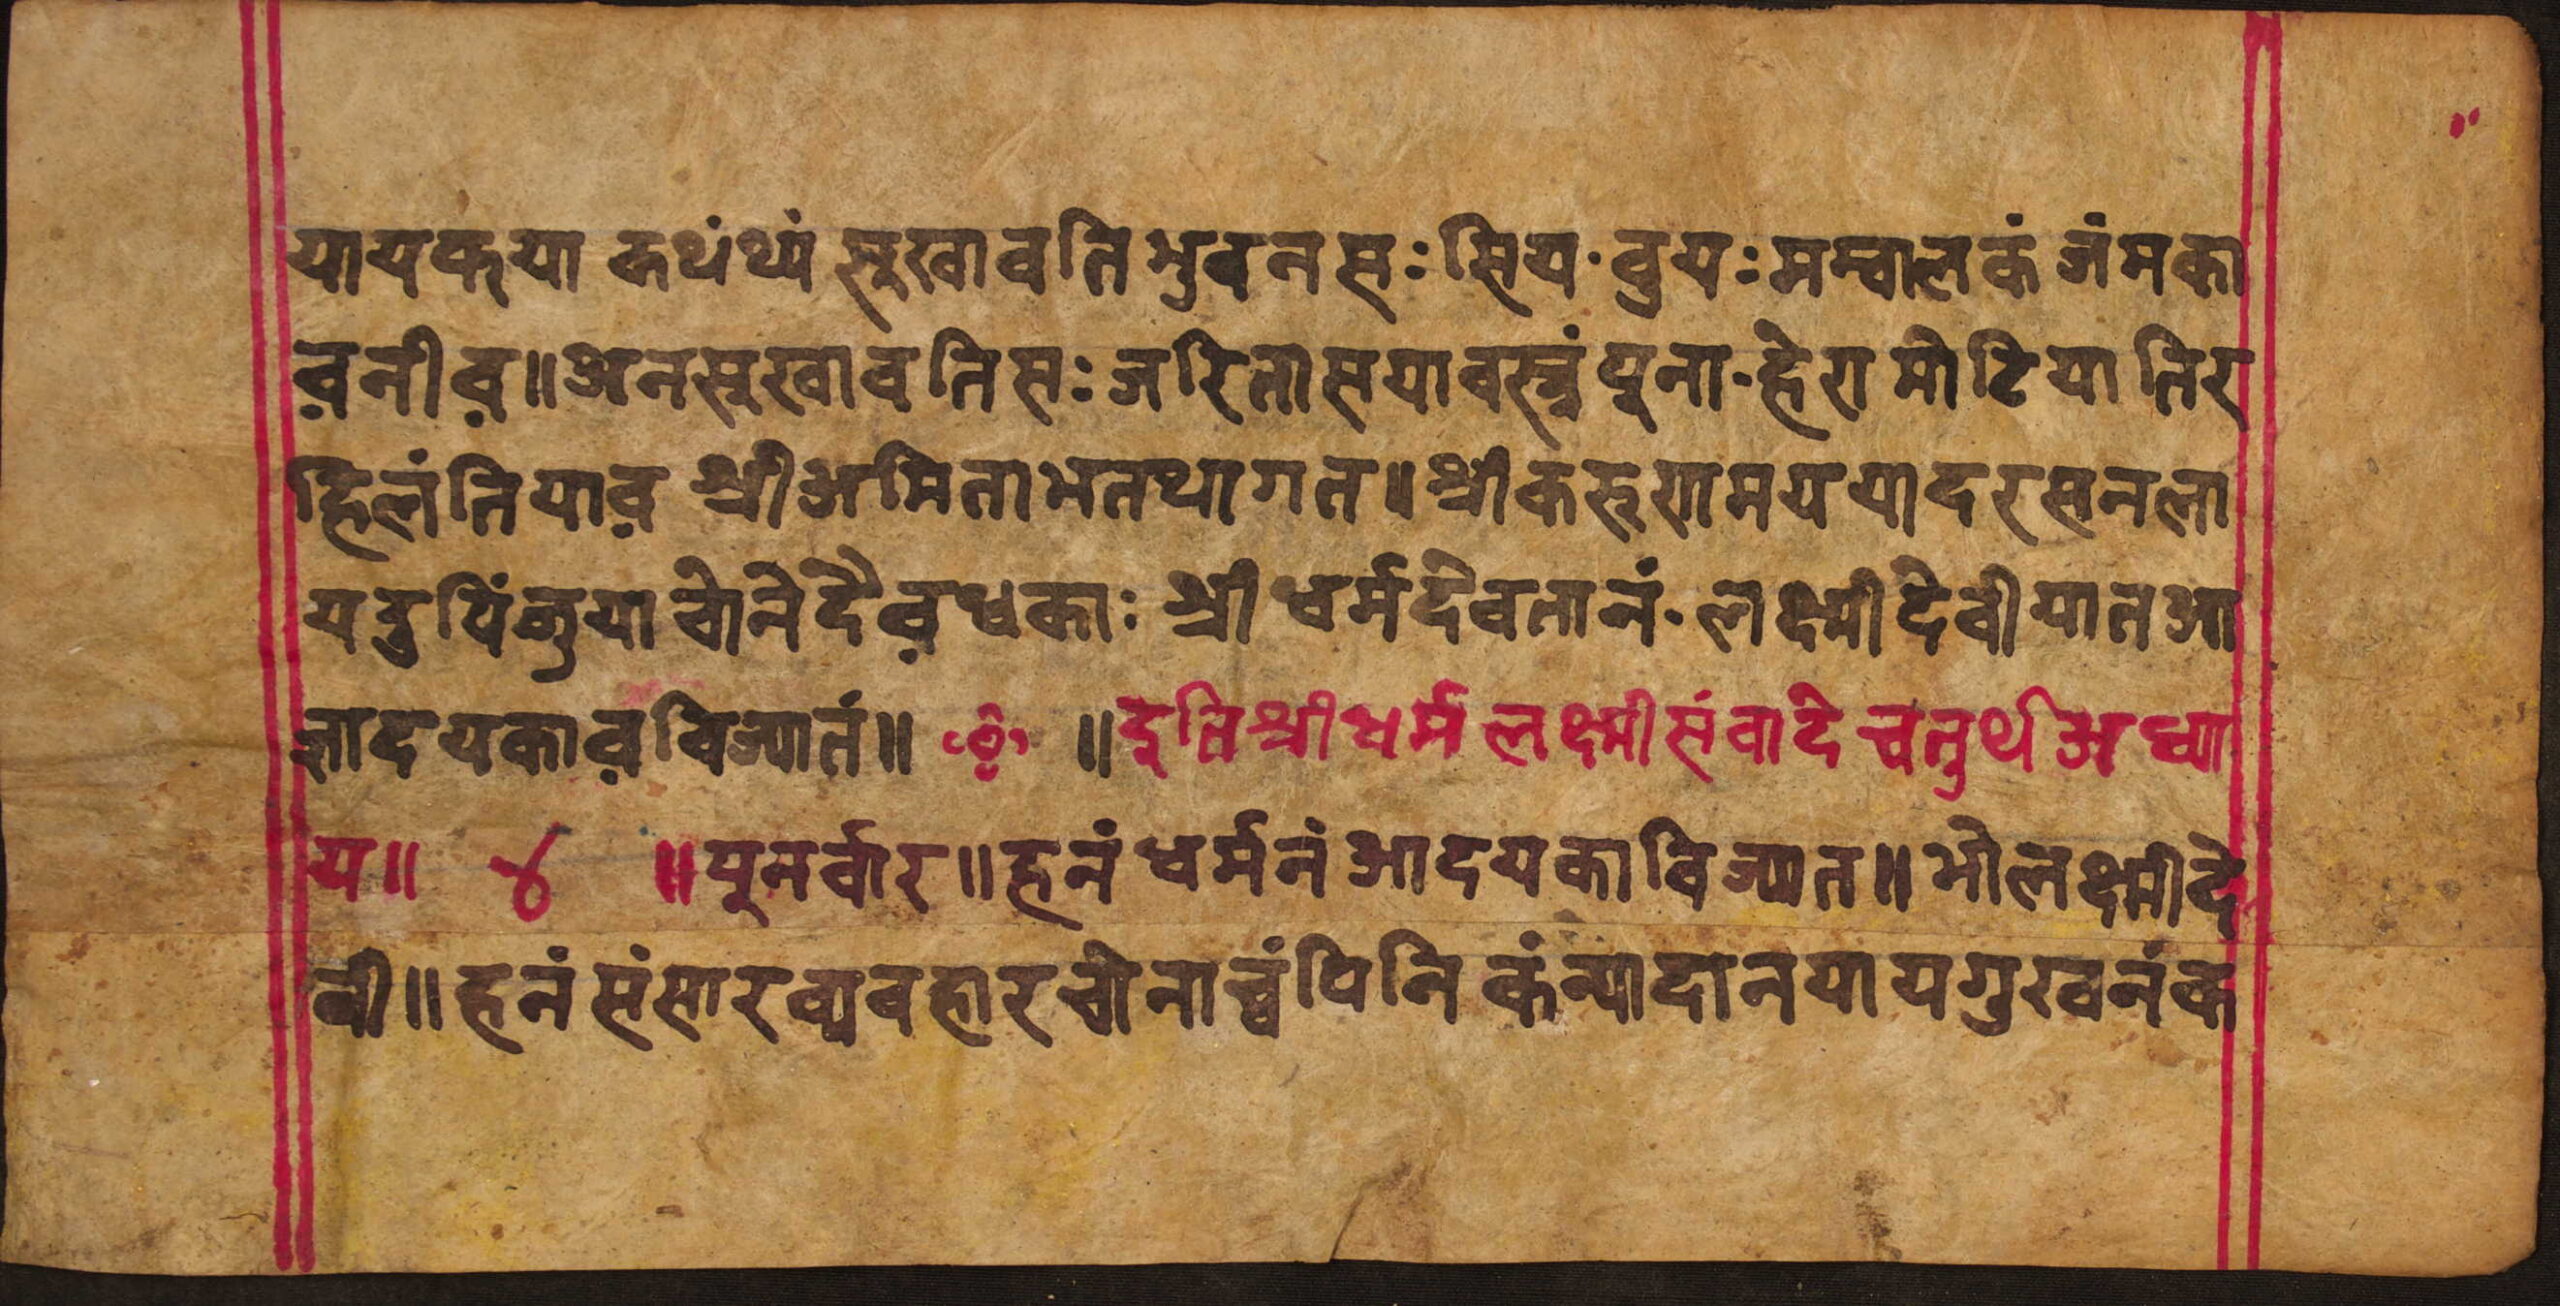 यायकया कथंथ्यं सूखावति भुवनसः सिय · वुयः मम्वालकं जंमका
व़नीव़॥ अनसूखावतिसः जरितासयावस्त्रं पूना · हेरामोटियातिर
हिलंतियाव़ श्रीअमिताभतथागत॥ श्रीकरूणामययादरसनला
यदुपिंऌया चोनेदैव़धकाः श्रीधर्मदेवतानं · लक्ष्मीदेवीयातआ
ज्ञादयकाव़विज्यातं॥ ॥ इतिश्रीधर्मलक्ष्मीसंवादे चतुर्थअध्या
य॥ ४ ॥ पूनर्वार॥ हनंधर्मनंआदयकाविज्यात॥ भोलक्ष्मीदे
वी॥ हनंसंसारव्यवहारचोनाच्वंपिनि कंन्यादानयायगुरवनंक